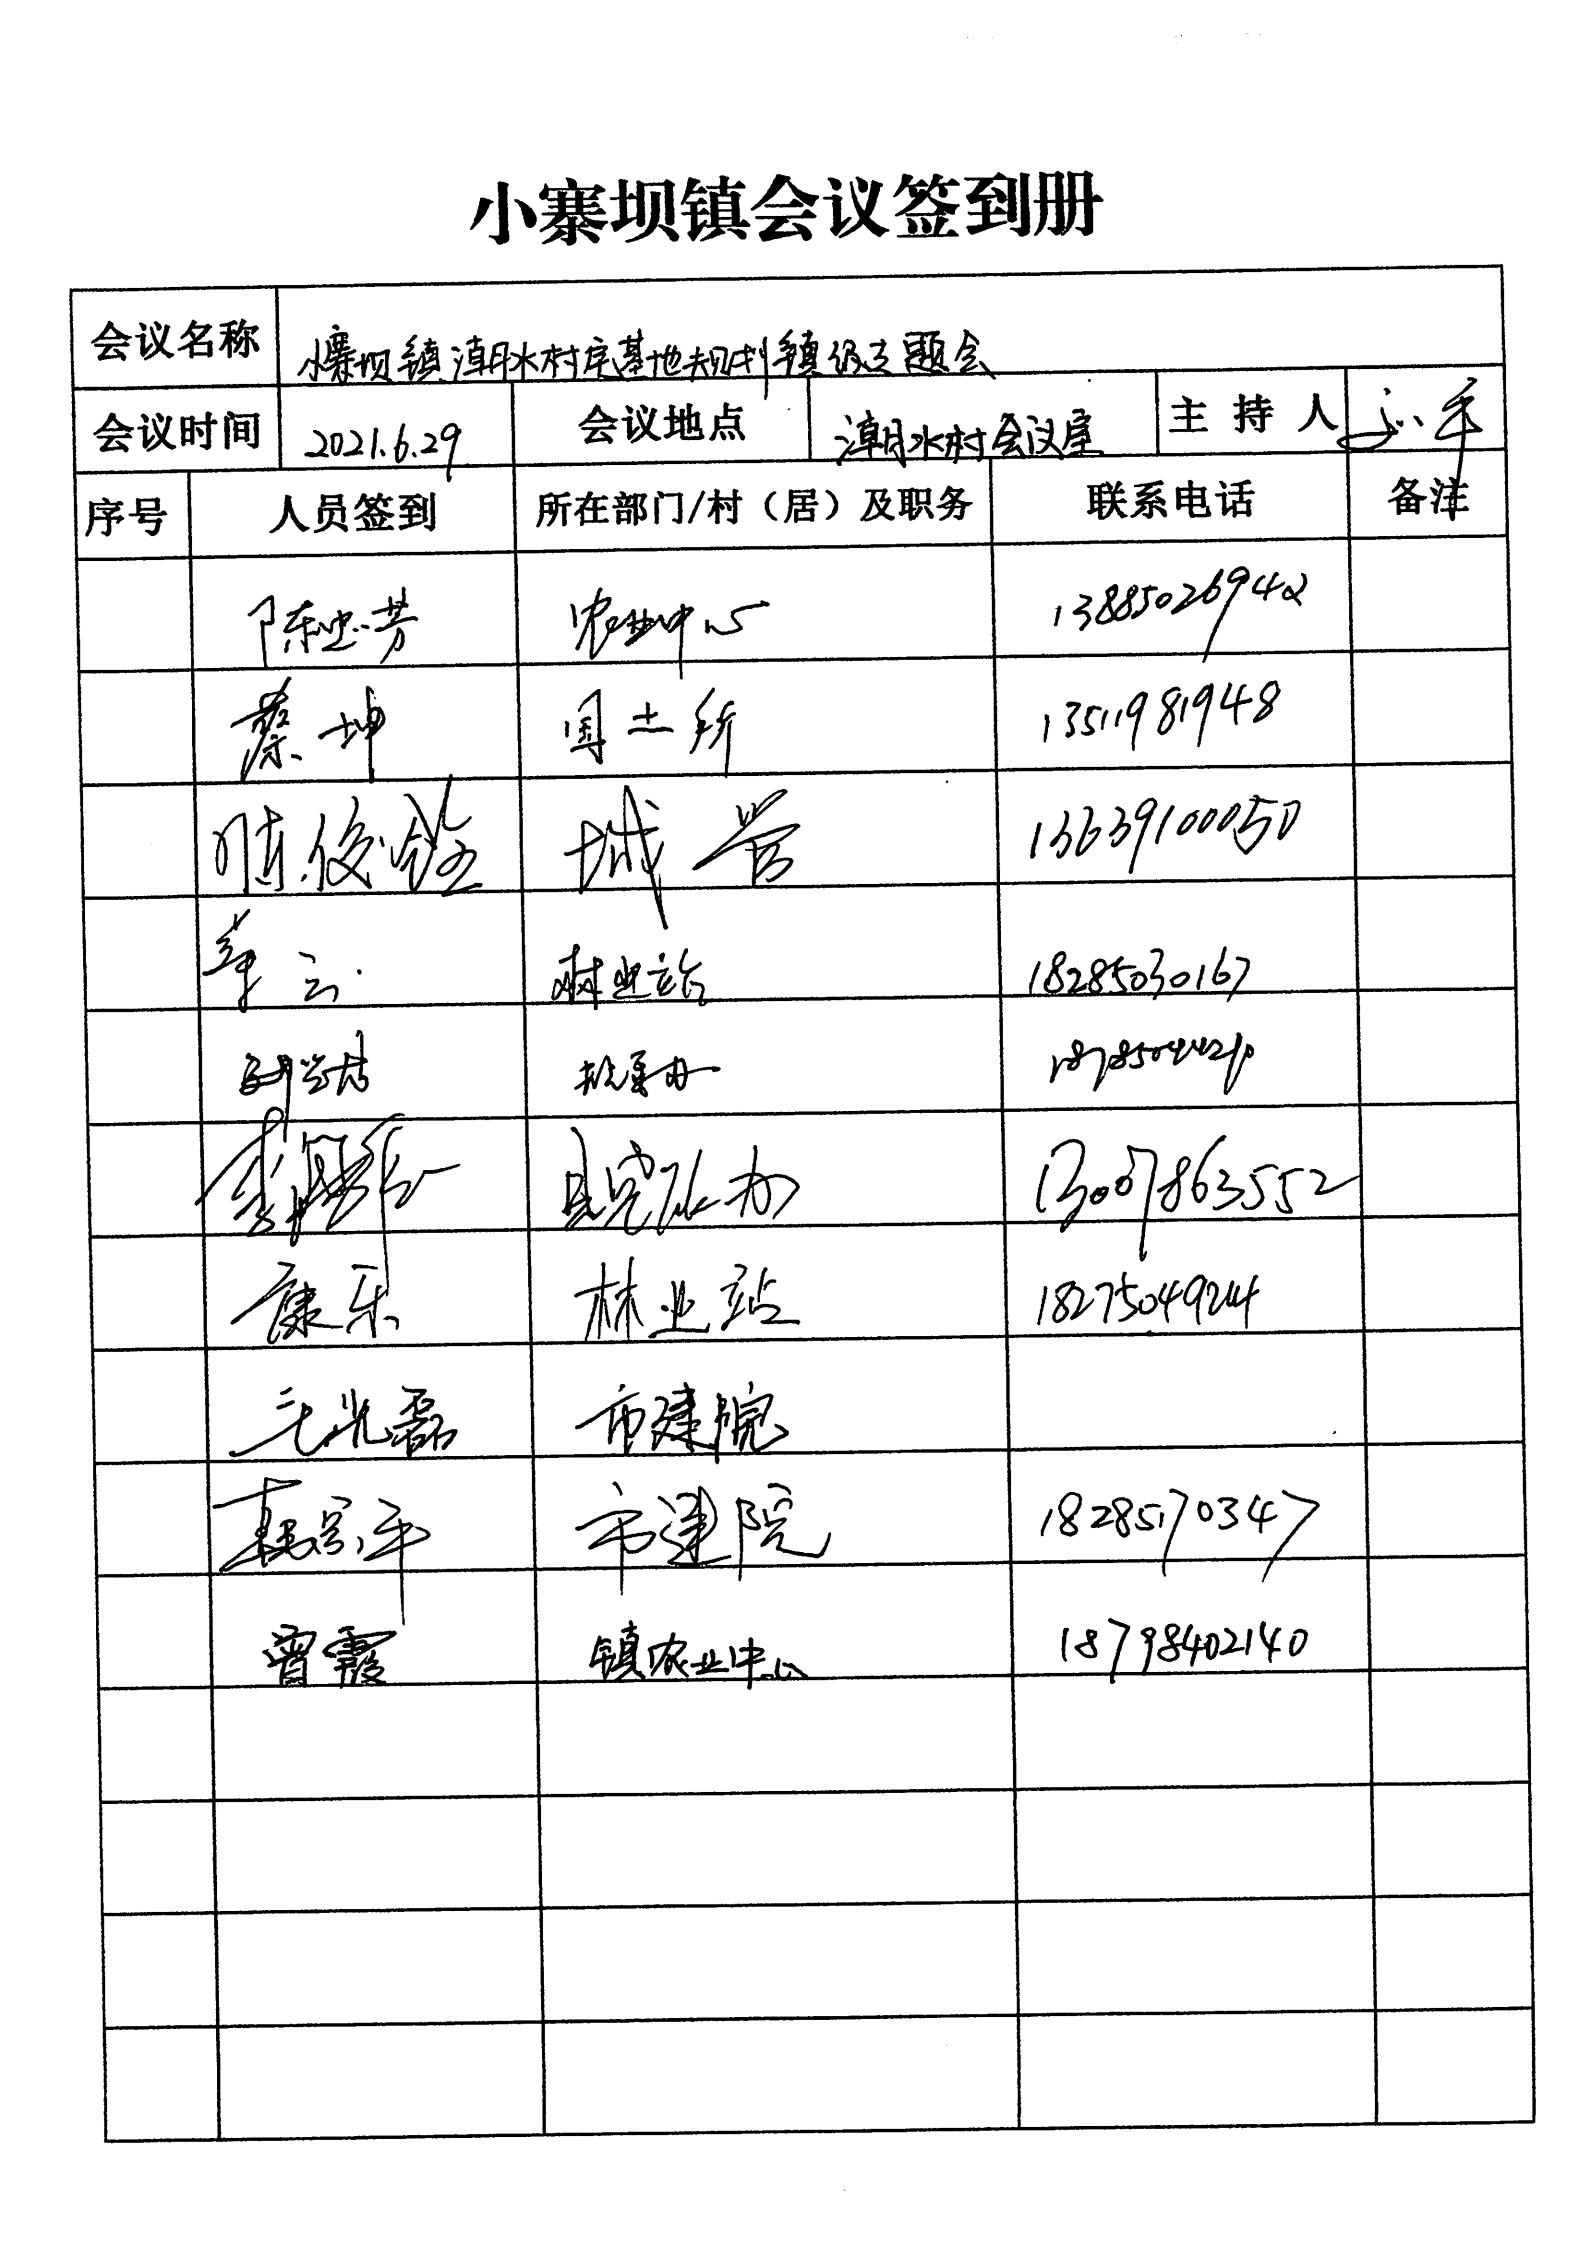 小寨坝镇会议签到册
会议名称 小寨坝镇潮水村 基地规划镇级专题会
会议时间 2021.6.29 会议地点 潮水村会议室 主持人
序号 人员签到 所在部门/村（居）及职务 联系电话 备注
陈忠芳 农业中心 13885026942
蔡坤 国土所 13511981948
陆俊铨 城管 13639100050
章云 林业站 18285030167
扶贫办
县党政办 13007863552
康乐 林业站 18275049244
王光磊 市建院
韩宗平 市建院 18285170347
曾霞 镇农业中心 18798402140